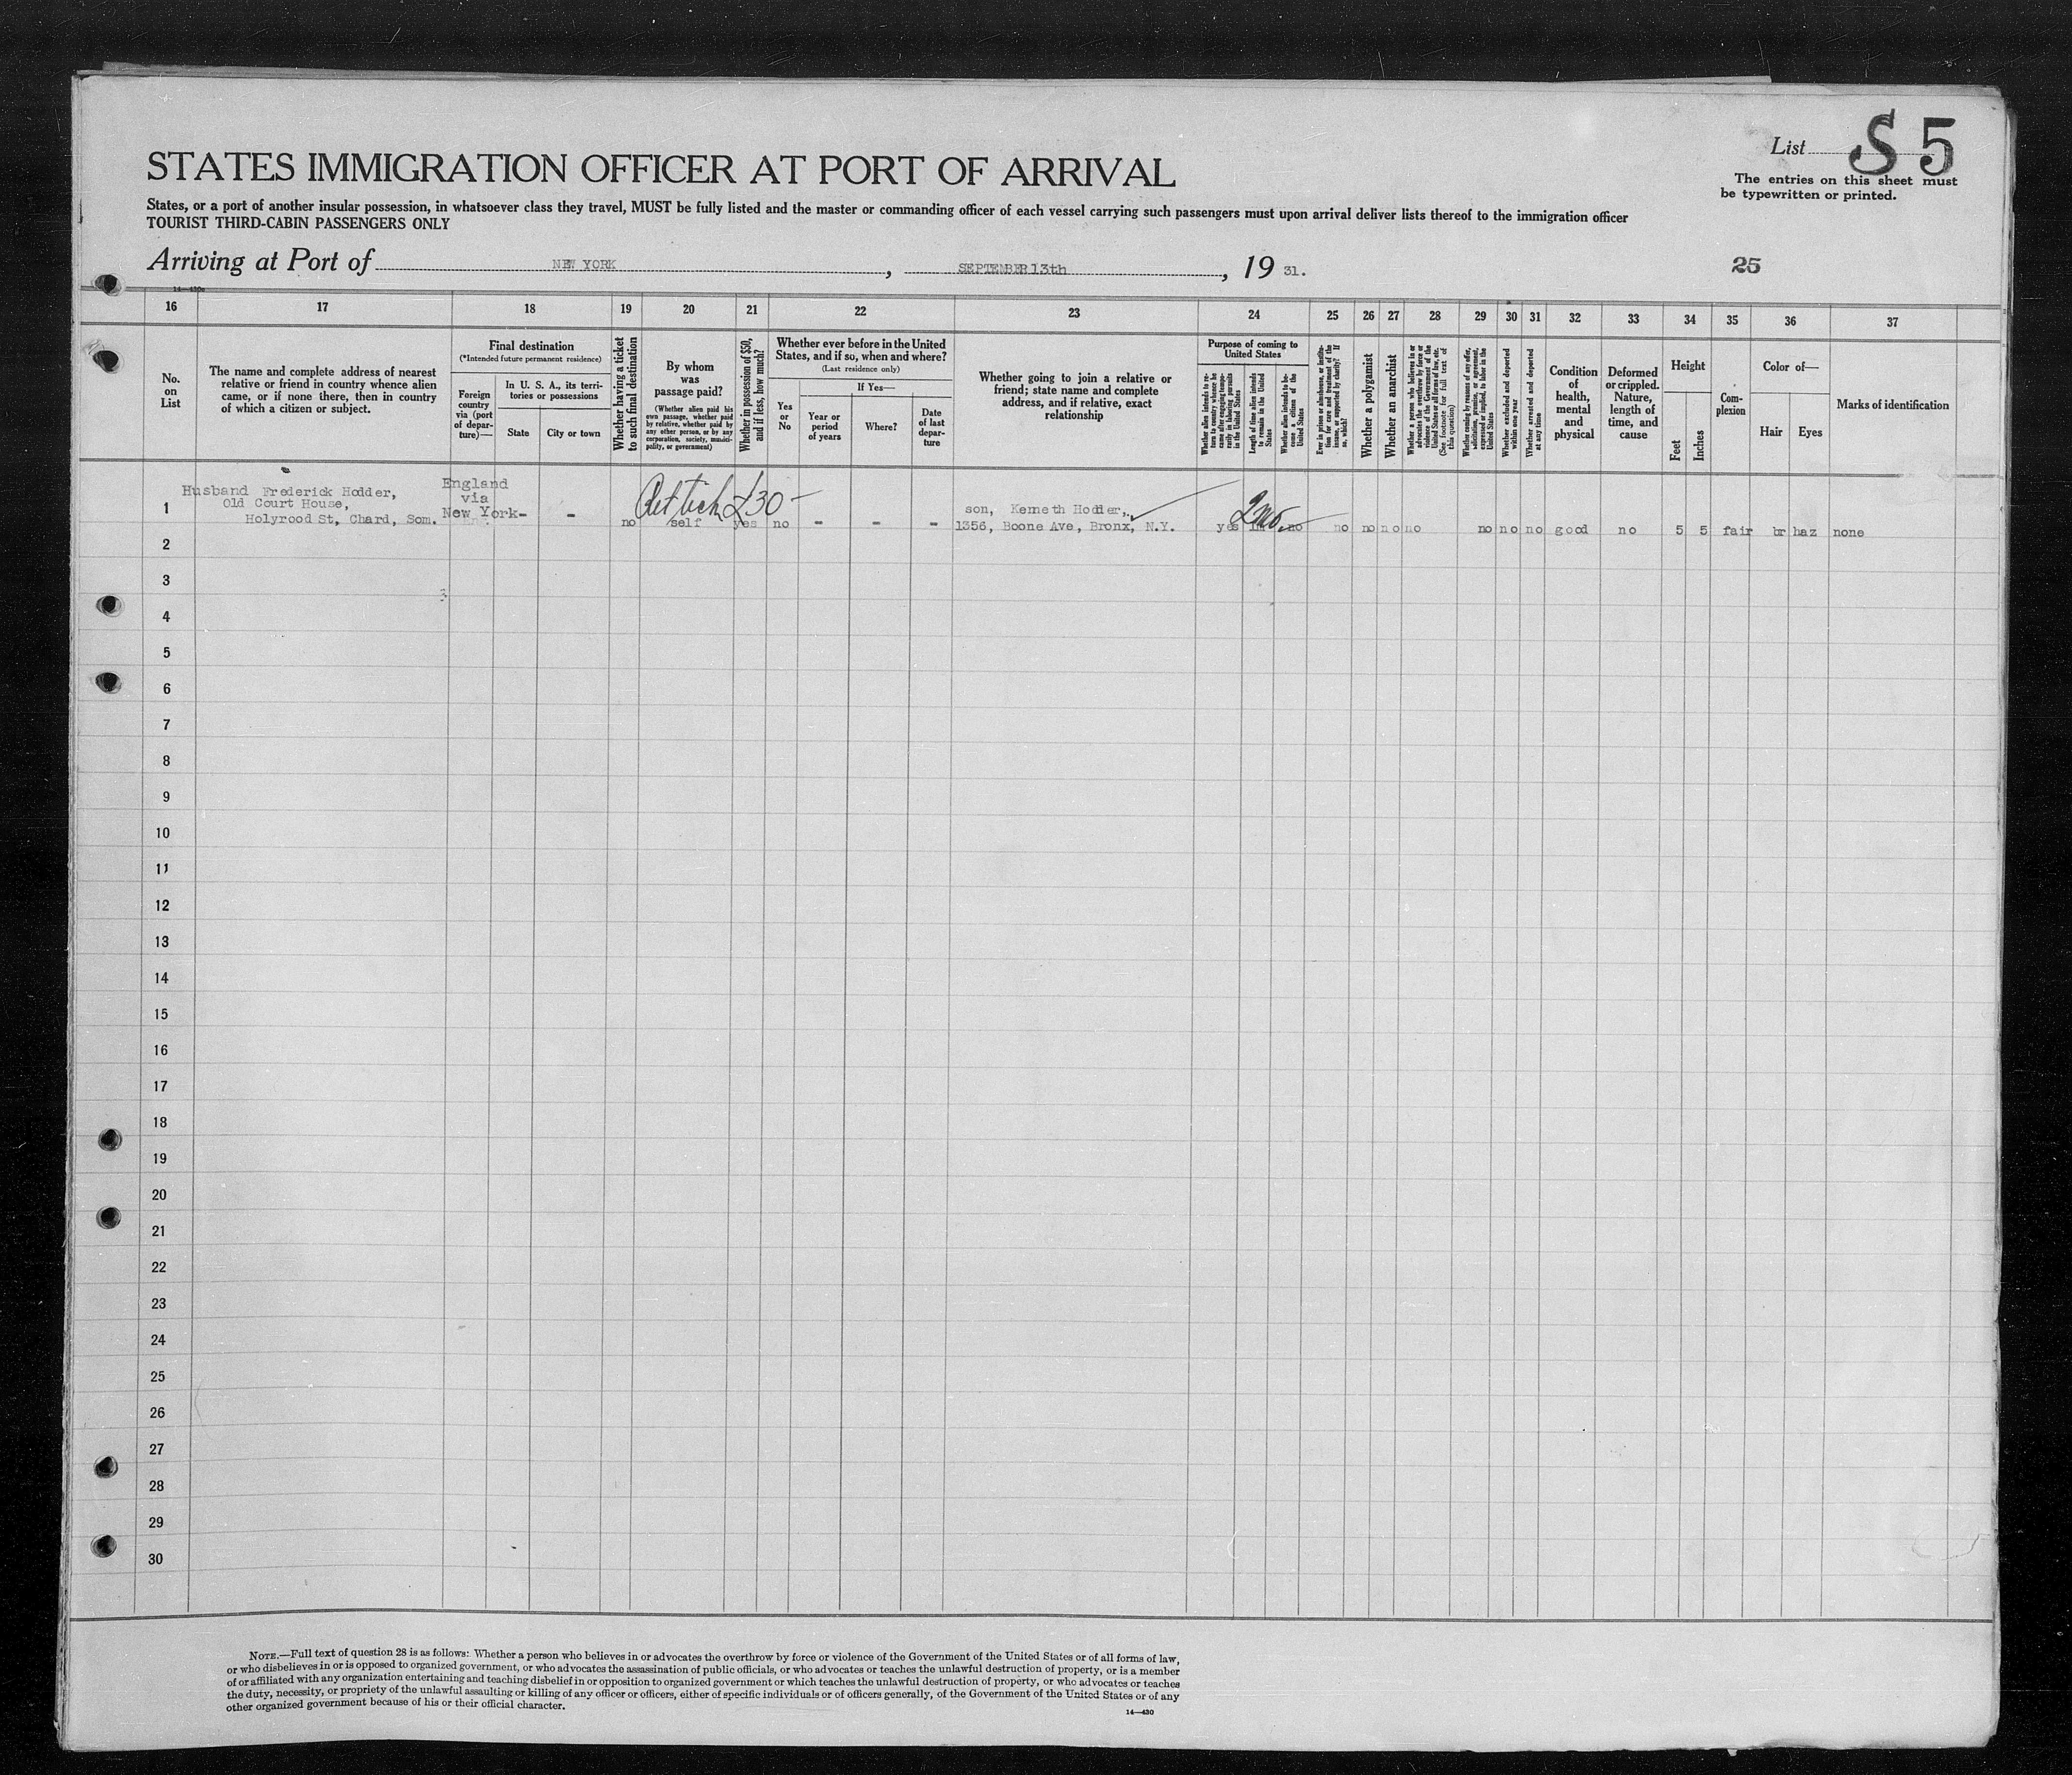 List S 5
The entries on this sheet must
be typewritten or printed.
STATES IMMIGRATION OFFICER AT PORT OF ARRIVAL
States, or a port of another insular possession, in whatsoever class they travel, MUST be fully listed and the master or commanding officer of each vessel carrying such passengers must upon arrival deliver lists thereof to the immigration officer
TOURIST THIRD-CABIN PASSENGERS ONLY
Arriving at Port of NEW YORK, SEPTEMBER 13th, 19 31.
25
16 17 18 19 20 21 22 23 24 25 26 27 28 29 30 31 32 33 34 35 36 37
No.
on
List
The name and complete address of nearest
relative or friend in country whence alien
came, or if none there, then in country
of which a citizen or subject.
Final destination
(*Intended future permanent residence)
Foreign
country
via (port
of depar-
ture)—
In U. S. A., its terri-
tories or possessions
State
City or town
Whether having a ticket
to such final destination
By whom
was
passage paid?
(Whether alien paid his
own passage, whether paid
by relative, whether paid by
any other person, or by any
corporation, society, munici-
pality, or government)
Whether in possession of $50,
and if less, how much?
Whether ever before in the United
States, and if so, when and where?
(Last residence only)
Yes
or
No
If Yes—
Year or
period
of years
Where?
Date
of last
depar-
ture
Whether going to join a relative or
friend; state name and complete
address, and if relative, exact
relationship
Purpose of coming to
United States
Whether alien intends to re-
turn to country whence he
came after engaging tempo-
rarily in laboring pursuits
in the United States
Length of time alien intends
to remain in the United
States
Whether alien intends to be-
come a citizen of the
United States
Ever in prison or almshouse, or institu-
tion for care and treatment of the
insane, or supported by charity? If
so, which?
Whether a polygamist
Whether an anarchist
Whether a person who believes in or
advocates the overthrow by force or
violence of the Government of the
United States or all forms of law, etc.
(See footnote for full text of
this question)
Whether coming by reasons of any offer,
solicitation, promise, or agreement,
expressed or implied, to labor in the
United States
Whether excluded and deported
within one year
Whether arrested and deported
at any time
Condition
of
health,
mental
and
physical
Deformed
or crippled.
Nature,
length of
time, and
cause
Height
Feet
Inches
Com-
plexion
Color of—
Hair
Eyes
Marks of identification
1
Husband Frederick Hodder,
Old Court House,
Holyrood St, Chard, Som.
England
via
New York- -
no
Ret tick
self
£30-
yes no - - -
son, Kenneth Hodder,
1356, Boone Ave, Bronx, N.Y.
yes 2mo. no no no no no no no no good no 5 5 fair br haz none
2
3
4
5
6
7
8
9
10
11
12
13
14
15
16
17
18
19
20
21
22
23
24
25
26
27
28
29
30
NOTE.—Full text of question 28 is as follows: Whether a person who believes in or advocates the overthrow by force or violence of the Government of the United States or of all forms of law,
or who disbelieves in or is opposed to organized government, or who advocates the assassination of public officials, or who advocates or teaches the unlawful destruction of property, or is a member
of or affiliated with any organization entertaining and teaching disbelief in or opposition to organized government or which teaches the unlawful destruction of property, or who advocates or teaches
the duty, necessity, or propriety of the unlawful assaulting or killing of any officer or officers, either of specific individuals or of officers generally, of the Government of the United States or of any
other organized government because of his or their official character.
14—430